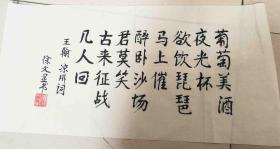 葡萄美酒
夜光杯
欲饮琵琶
马上催
醉卧沙场
君莫笑
古来征战
几人回
王翰 凉州词
徐文达书